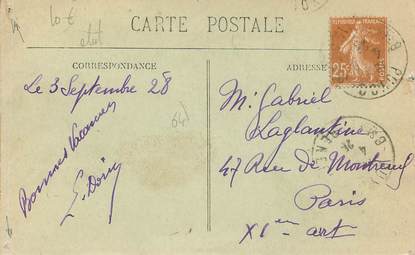 10 €
état
CARTE POSTALE
CORRESPONDANCE
ADRESSE
Le 3 Septembre 28
64
Bonnes Vacances
M. Gabriel
Laglantine
47 Rue de Montreuil
Paris
XIem arrt
25c
POSTES